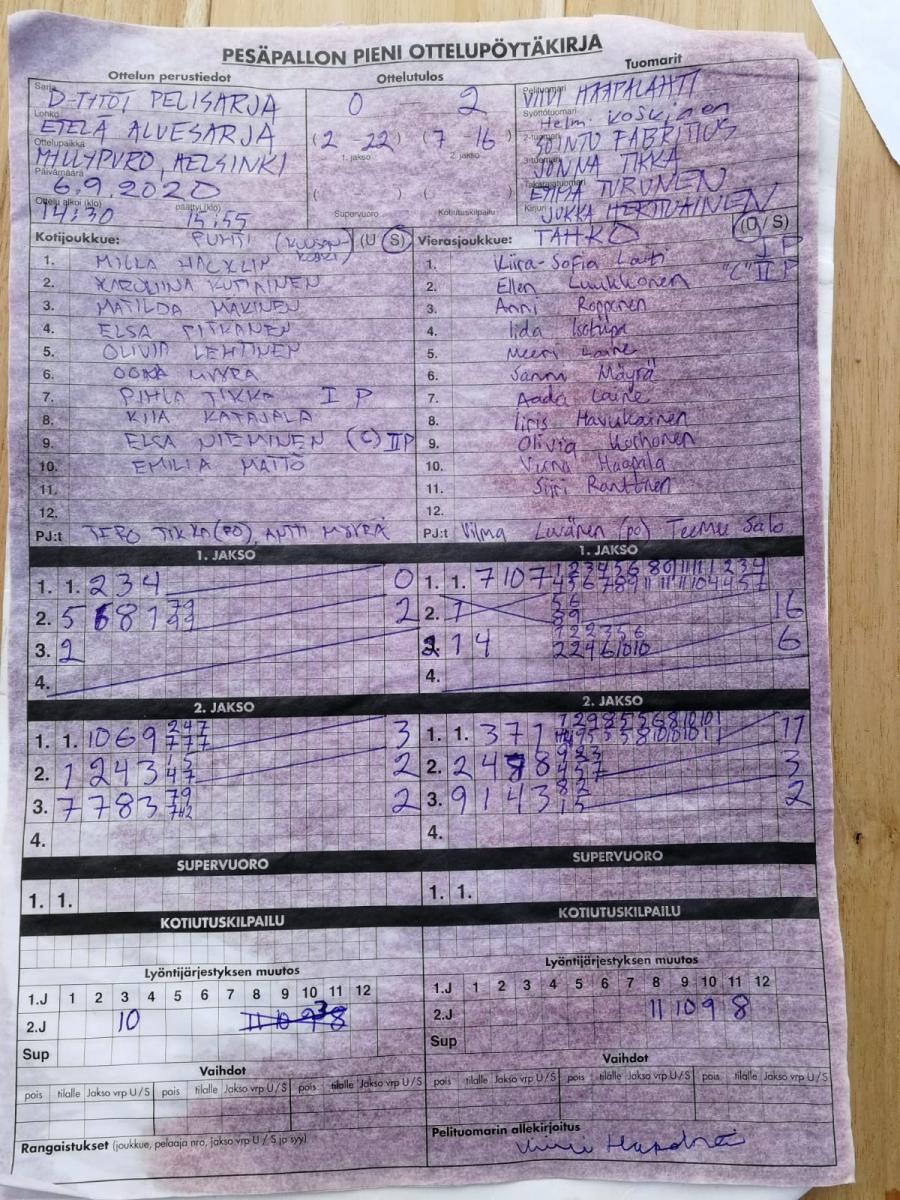 PESÄPALLON PIENI OTTELUPÖYTÄKIRJA
Ottelun perustiedot Ottelutulos Tuomarit
Sarja D-TYTÖT PELISARJA
Lohko ETELÄ ALUESARJA
Ottelupaikka MYLLYPURO, HELSINKI
Päivämäärä 6.9.2020
Ottelu alkoi (klo) 14:30 päättyi (klo) 15:55
0 - 2
(2 - 22) (7 - 16)
1. jakso 2. jakso
( - ) ( - )
Supervuoro Kotiutuskilpailu
Pelituomari VIIVI HAAPALAHTI
Syöttötuomari Helmi Koskinen
2-tuomari SOINTU FABRITIUS
3-tuomari JONNA TIKKA
Takarajatuomari TURUNEN
Kirjuri JUKKA
Kotijoukkue: PUHTI (KUUSANKOSKI) (U / S)
1. MILLA HACKLIN
2. KAROLIINA KUTIAINEN
3. MATILDA MÄKINEN
4. ELSA PITKÄNEN
5. OLIVIA LEHTINEN
6. OONA MYYRÄ
7. PIHLA TIKKA I P
8. KIIA KATAJALA
9. ELSA NIEMINEN (C) II P
10. EMILIA MATTÖ
11.
12.
PJ:t TERO TIKKA (PO), ANTTI MYYRÄ
Vierasjoukkue: TAHKO (U / S)
1. Kiira-Sofia Lahti I P
2. Ellen Luukkonen "C" II P
3. Anni Ropponen
4. Iida Isotupa
5. Meeri Laine
6. Sanni Mäyrä
7. Aada Laine
8. Iiris Havukainen
9. Olivia Korhonen
10. Viena Haapala
11. Siiri Ranttinen
12.
PJ:t Vilma (po) Teemu Salo
1. JAKSO
1. 1. 2 3 4 0
2. 5 6 8 1 2
3. 2
4.
1. JAKSO
1. 1. 7 10 7
2. 1 16
3. 1 4 6
4.
2. JAKSO
1. 1. 10 6 9 3
2. 1 2 4 3 2
3. 7 7 8 3 2
4.
2. JAKSO
1. 1. 3 7 1 11
2. 2 4 8 3
3. 9 1 4 3 2
4.
SUPERVUORO
1. 1.
SUPERVUORO
1. 1.
KOTIUTUSKILPAILU
KOTIUTUSKILPAILU
Lyöntijärjestyksen muutos
1.J 1 2 3 4 5 6 7 8 9 10 11 12
2.J 10 11 10 9 3 8
Sup
Lyöntijärjestyksen muutos
1.J 1 2 3 4 5 6 7 8 9 10 11 12
2.J 11 10 9 8
Sup
Vaihdot
pois tilalle Jakso vrp U / S pois tilalle Jakso vrp U / S pois tilalle Jakso vrp U / S
Vaihdot
pois tilalle Jakso vrp U / S pois tilalle Jakso vrp U / S pois tilalle Jakso vrp U / S
Rangaistukset (joukkue, pelaaja nro, jakso vrp U / S ja syy)
Pelituomarin allekirjoitus